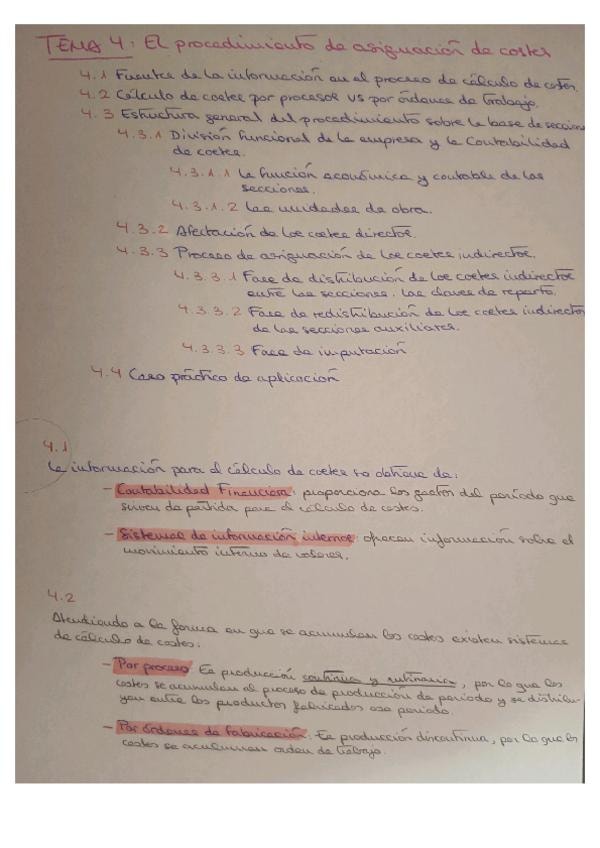 TEMA 4: El procedimiento de asignación de costes
4.1 Fuentes de la información en el proceso de cálculo de costes.
4.2 Cálculo de costes por procesos VS por órdenes de trabajo.
4.3 Estructura general del procedimiento sobre la base de secciones
4.3.1 División funcional de la empresa y la Contabilidad
de costes.
4.3.1.1 La función económica y contable de las
secciones.
4.3.1.2 Las unidades de obra.
4.3.2 Afectación de los costes directos.
4.3.3 Proceso de asignación de los costes indirectos.
4.3.3.1 Fase de distribución de los costes indirectos
entre las secciones. Las claves de reparto.
4.3.3.2 Fase de redistribución de los costes indirectos
de las secciones auxiliares.
4.3.3.3 Fase de imputación
4.4 Caso práctico de aplicación
4.1
La información para el cálculo de costes se obtiene de:
- Contabilidad Financiera: proporciona los gastos del período que
sirven de partida para el cálculo de costes.
- Sistemas de información internos: ofrecen información sobre el
movimiento interno de valores.
4.2
Atendiendo a la forma en que se acumulan los costes existen sistemas
de cálculo de costes:
- Por proceso: Es producción continua y rutinaria, por lo que los
costes se acumulan al proceso de producción de período y se distribu-
yen entre los productos fabricados ese período.
- Por órdenes de fabricación: Es producción discontinua, por lo que los
costes se acumulan orden de trabajo.